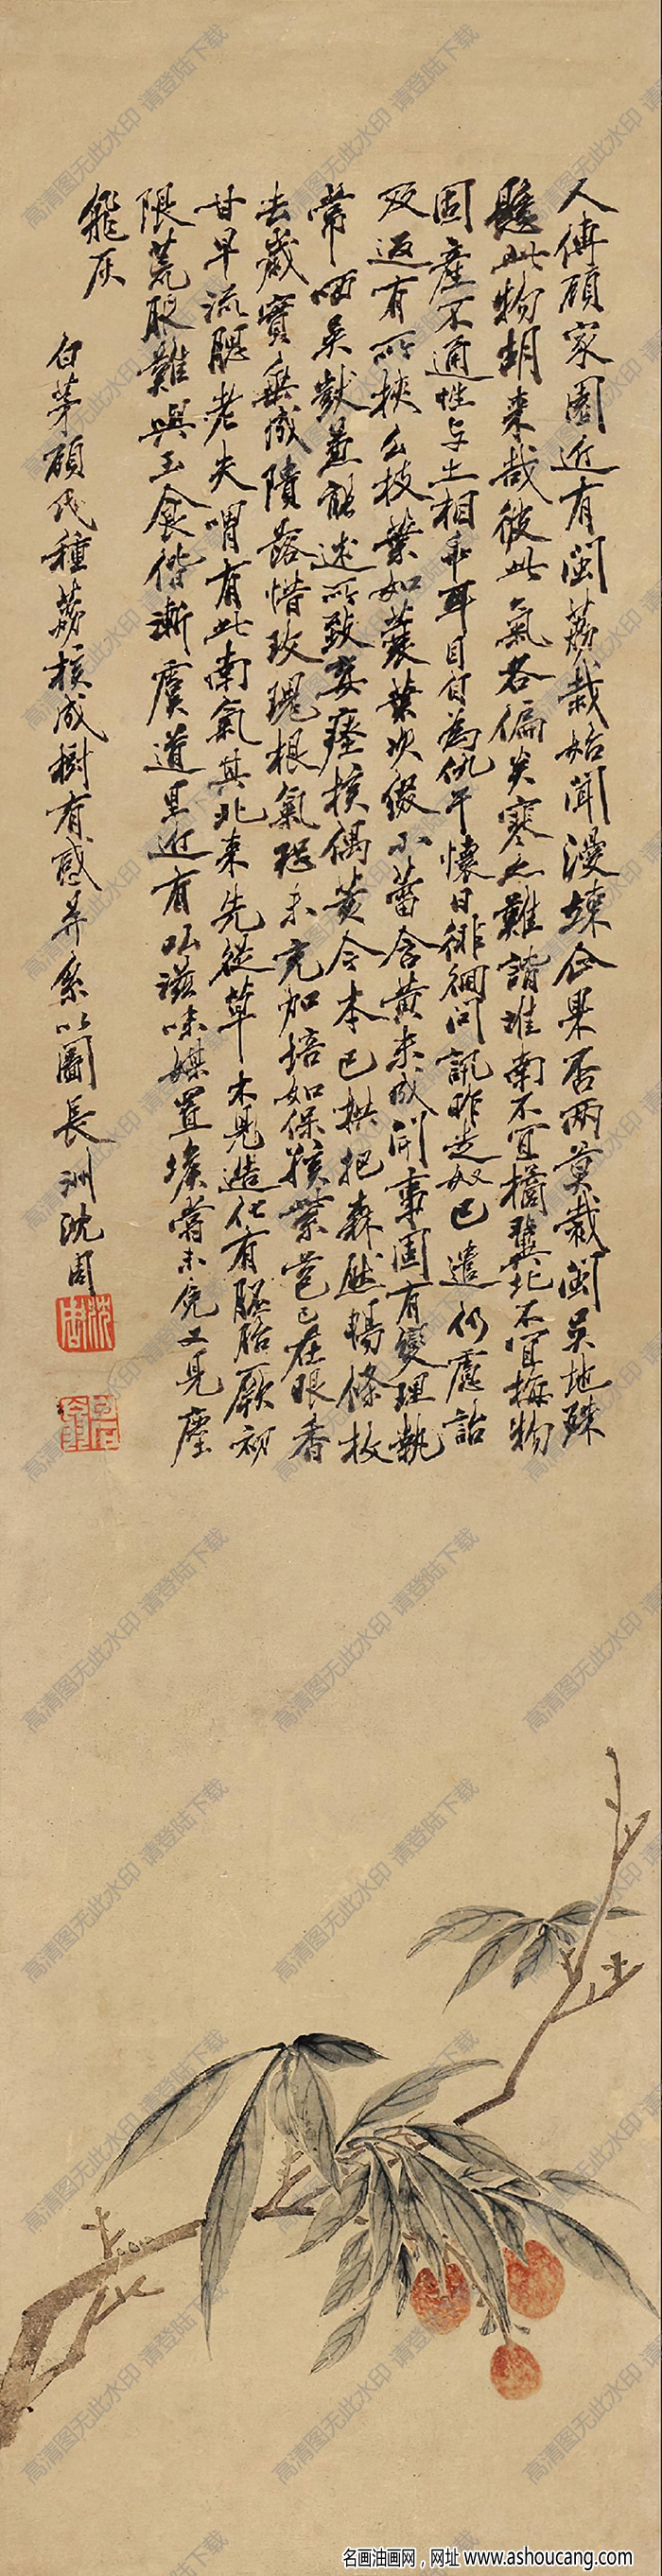 人傳顧家園近有閩荔栽始聞漫竦企果否兩莫裁閩吳地殊
懸此物胡來哉彼此氣各偏炎寒必難諧淮南不宜橘冀北不宜梅物
固產不通性与土相乖耳目自為仇午懷日徘徊問訊昨走奴已遣仍慮詒
及返有所挾公枝葉如蓑葉次綴小蕾含黃未成開事固有變理執
常哂吳獃並能述所致宴瘞核偶黃今本已拱把森然暢條枚
去歲實垂成隤落惜玫瑰根氣恐未充加培如保孩紫苞已在眼香
甘早流腮老夫喟有此南氣其北來先從草木見造化有胚胎厥初
限荒服難與玉食偕漸虞道里近有以滋味媒置堠嘗未免又見塵
飛灰
白茅顧氏種荔核成樹有感并系以圖長洲沈周
沈周
高清图无此水印 请登陆下载
名画油画网，网址 www.ashoucang.com